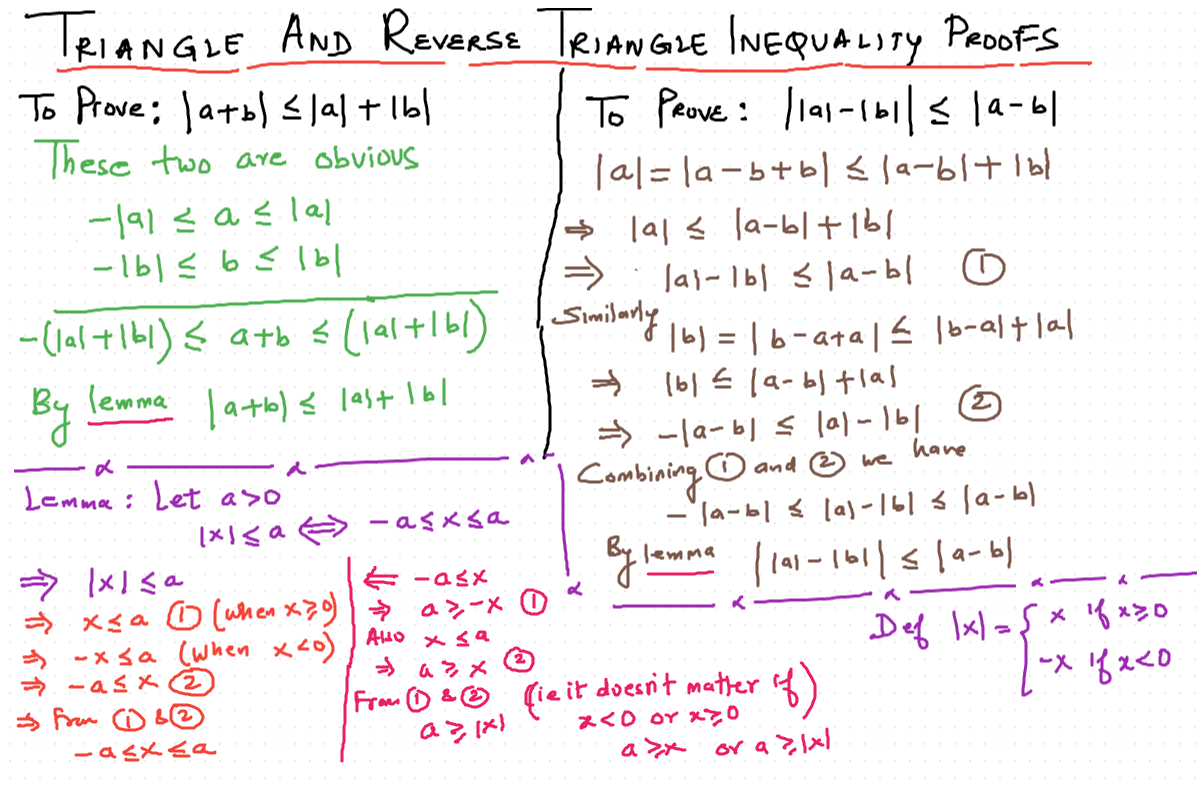 TRIANGLE AND REVERSE TRIANGLE INEQUALITY PROOFS
To Prove: |a+b| ≤ |a| + |b|
These two are obvious
-|a| ≤ a ≤ |a|
-|b| ≤ b ≤ |b|
-(|a|+|b|) ≤ a+b ≤ (|a|+|b|)
By lemma |a+b| ≤ |a|+|b|
To PROVE: ||a|-|b|| ≤ |a-b|
|a| = |a-b+b| ≤ |a-b|+|b|
⇒ |a| ≤ |a-b|+|b|
⇒ |a|-|b| ≤ |a-b| ①
Similarly |b| = |b-a+a| ≤ |b-a|+|a|
⇒ |b| ≤ |a-b|+|a|
⇒ -|a-b| ≤ |a|-|b| ②
Combining ① and ② we have
-|a-b| ≤ |a|-|b| ≤ |a-b|
By lemma ||a|-|b|| ≤ |a-b|
Lemma: Let a>0
|x| ≤ a ⟺ -a≤x≤a
⇒ |x| ≤ a
⇒ x≤a ① (when x≥0)
⇒ -x≤a (when x<0)
⇒ -a≤x ②
⇒ From ① & ②
-a≤x≤a
⇐ -a≤x
⇒ a≥-x ①
Also x≤a
⇒ a≥x ②
From ① & ② (ie it doesn't matter if)
a≥|x| x<0 or x≥0
a≥x or a≥|x|
Def |x| = { x if x≥0
-x if x<0